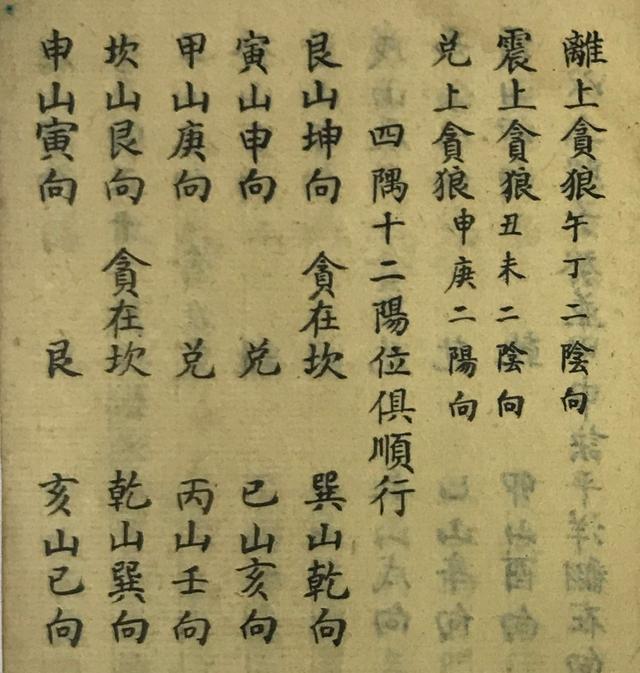 離上貪狼午丁二陰向
震上貪狼丑未二陰向
兑上貪狼申庚二陽向
四隅十二陽位俱順行
艮山坤向 貪在坎 巽山乾向
寅山申向 兑 已山亥向
甲山庚向 兑 丙山壬向
坎山艮向 貪在坎 乾山巽向
申山寅向 艮 亥山已向